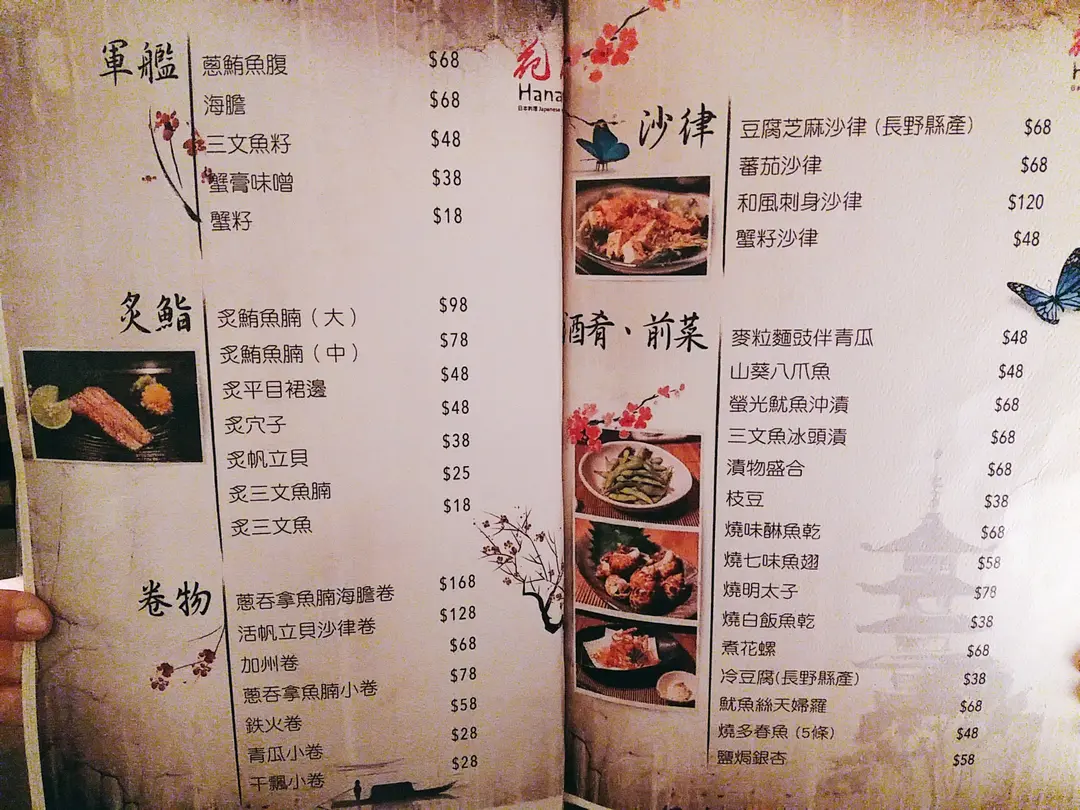 軍艦
蔥鮪魚腹 $68
海膽 $68
三文魚籽 $48
蟹膏味噌 $38
蟹籽 $18
花
Hana
日本料理 Japanese
炙鮨
炙鮪魚腩（大） $98
炙鮪魚腩（中） $78
炙平目裙邊 $48
炙穴子 $48
炙帆立貝 $38
炙三文魚腩 $25
炙三文魚 $18
卷物
蔥吞拿魚腩海膽卷 $168
活帆立貝沙律卷 $128
加州卷 $68
蔥吞拿魚腩小卷 $78
鉄火卷 $58
青瓜小卷 $28
干瓢小卷 $28
沙律
豆腐芝麻沙律 (長野縣產) $68
蕃茄沙律 $68
和風刺身沙律 $120
蟹籽沙律 $48
酒肴、前菜
麥粒麵豉伴青瓜 $48
山葵八爪魚 $48
螢光魷魚沖漬 $68
三文魚冰頭漬 $68
漬物盛合 $68
枝豆 $38
燒味醂魚乾 $68
燒七味魚翅 $58
燒明太子 $78
燒白飯魚乾 $38
煮花螺 $68
冷豆腐(長野縣產) $38
魷魚絲天婦羅 $68
燒多春魚 (5條) $48
鹽焗銀杏 $58